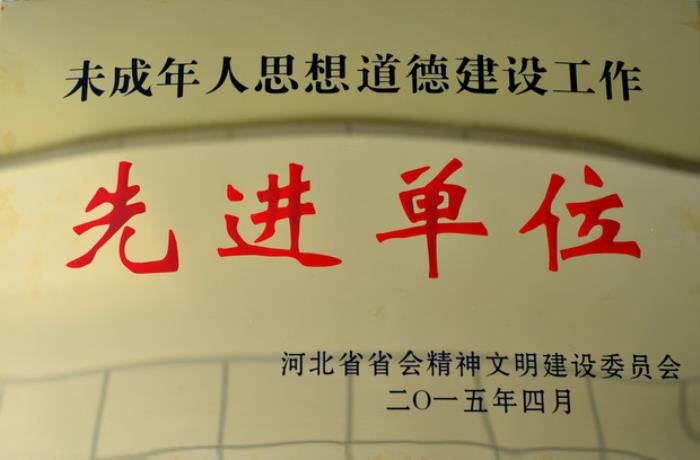 未成年人思想道德建设工作
先进单位
河北省省会精神文明建设委员会
二〇一五年四月